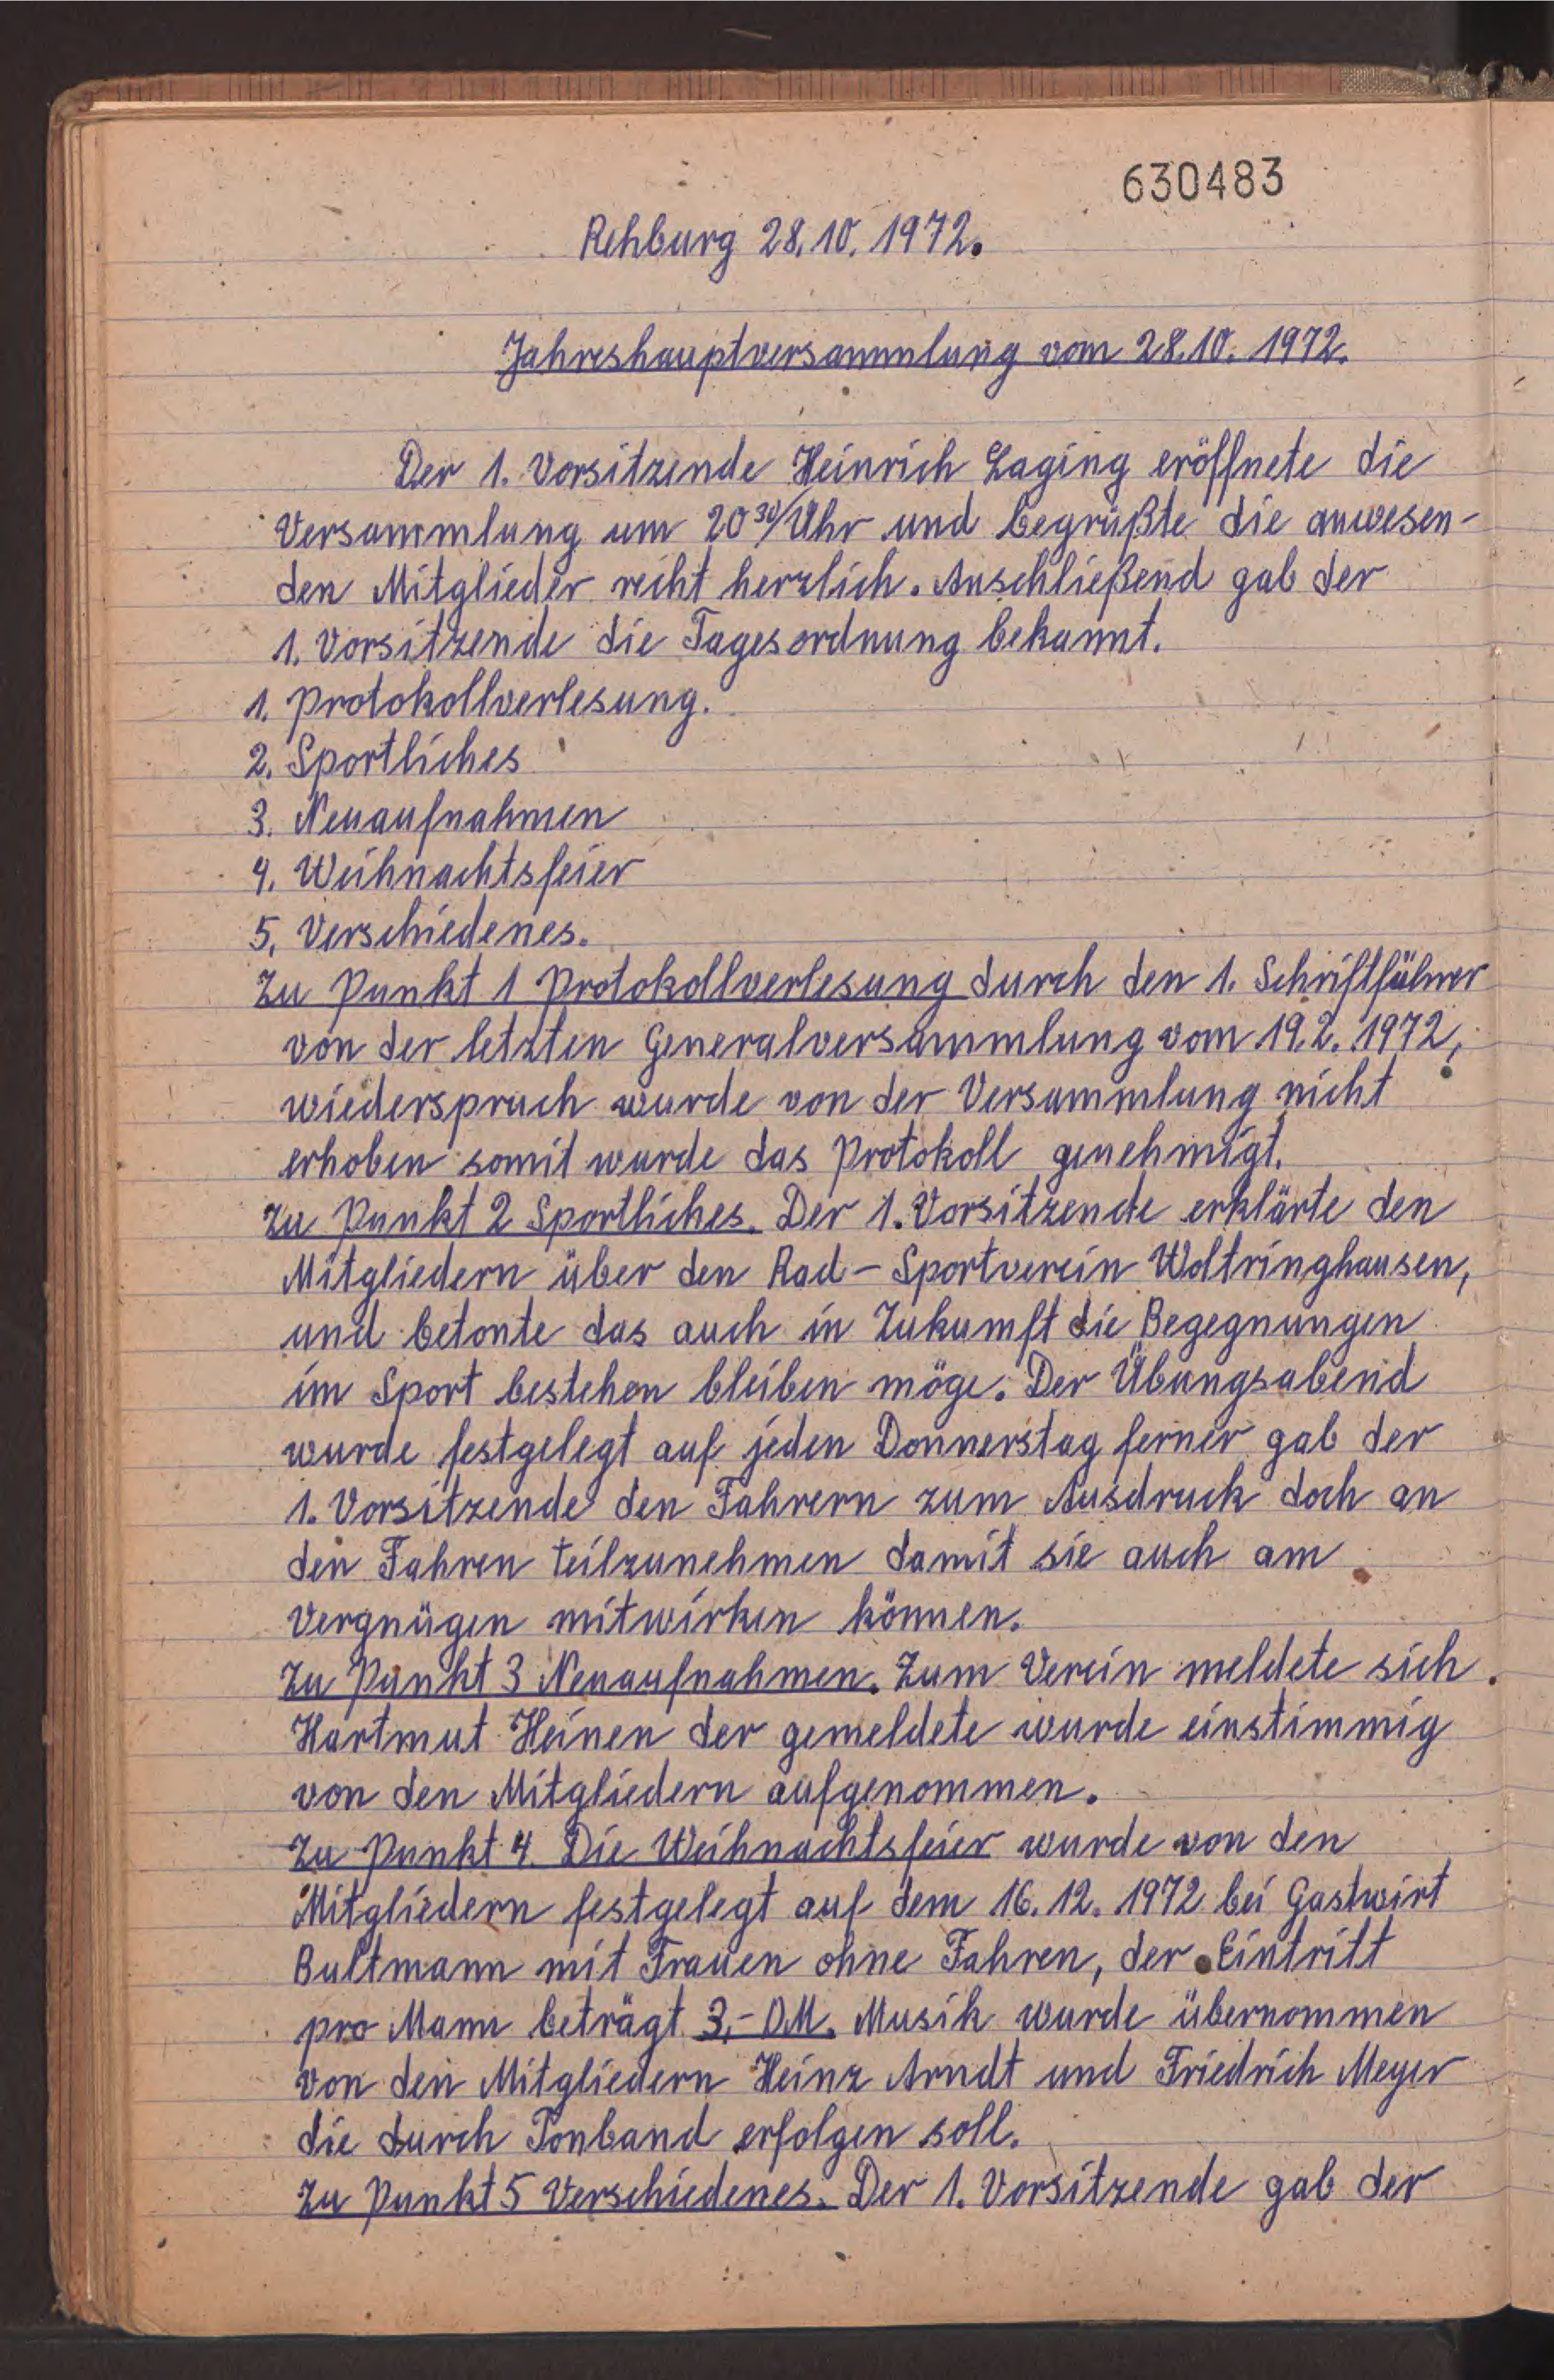 630483
Rehburg 28.10.1972.
Jahreshauptversammlung vom 28.10.1972.
Der 1. Vorsitzende Heinrich Laging eröffnete die
Versammlung um 20³⁰/Uhr und begrüßte die anwesen-
den Mitglieder recht herzlich. Anschließend gab der
1. Vorsitzende die Tagesordnung bekannt.
1. Protokollverlesung.
2. Sportliches
3. Neuaufnahmen
4. Weihnachtsfeier
5. Verschiedenes.
Zu Punkt 1 Protokollverlesung durch den 1. Schriftführer
von der letzten Generalversammlung vom 19.2.1972,
wiederspruch wurde von der Versammlung nicht
erhoben somit wurde das Protokoll genehmigt.
Zu Punkt 2 Sportliches. Der 1. Vorsitzende erklärte den
Mitgliedern über den Rad-Sportverein Woltringhausen,
und betonte das auch in Zukumft die Begegnungen
im Sport bestehen bleiben möge. Der Übungsabend
wurde festgelegt auf jeden Donnerstag ferner gab der
1. Vorsitzende den Fahrern zum Ausdruck doch an
den Fahren teilzunehmen damit sie auch am
Vergnügen mitwirken können.
Zu Punkt 3 Neuaufnahmen. Zum Verein meldete sich
Hartmut Heinen der gemeldete wurde einstimmig
von den Mitgliedern aufgenommen.
Zu Punkt 4. Die Weihnachtsfeier wurde von den
Mitgliedern festgelegt auf dem 16.12.1972 bei Gastwirt
Bultmann mit Frauen ohne Fahren, der Eintritt
pro Mann beträgt 3,- DM. Musik wurde übernommen
von den Mitgliedern Heinz Arndt und Friedrich Meyer
die durch Tonband erfolgen soll.
Zu Punkt 5 Verschiedenes. Der 1. Vorsitzende gab der